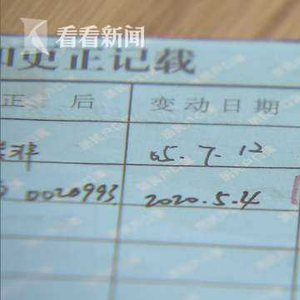 看看新闻
更正记载
正 后 变动日期
非 65.7.12
0020993 2020.5.4